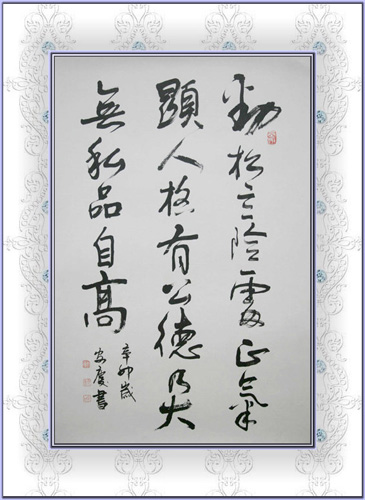 勁松立險處正氣
顯人格有公德乃大
無私品自高
辛卯歲
安慶書